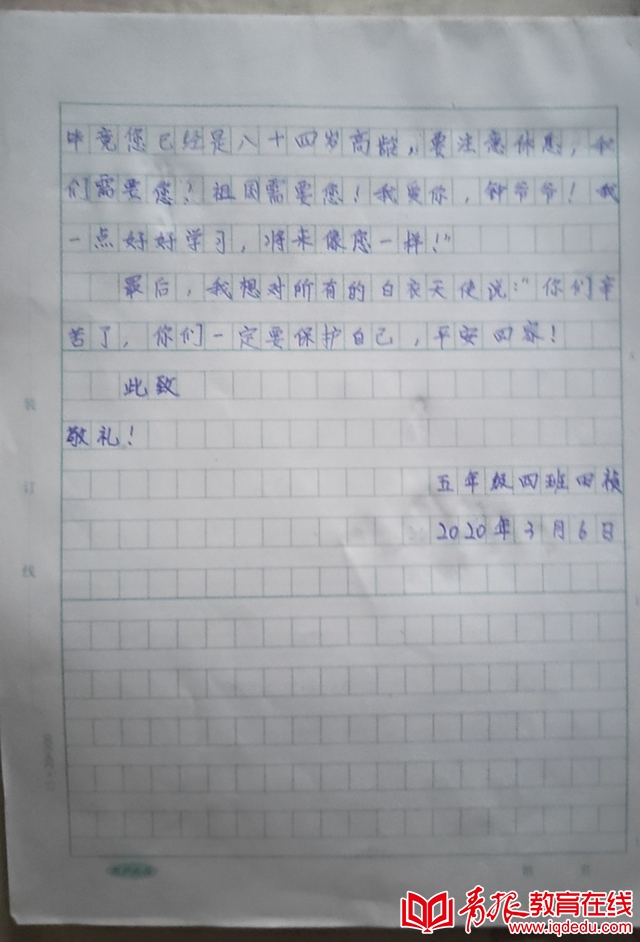 毕竟您已经是八十四岁高龄,要注意休息,我
们需要您!祖国需要您!我爱你,钟爷爷!我
一点好好学习,将来像您一样!"
最后,我想对所有的白衣天使说:"你们辛
苦了,你们一定要保护自己,平安回家!
此致
敬礼!
五年级四班田祯
2020年3月6日
装
订
线
青报教育在线
www.iqdedu.com